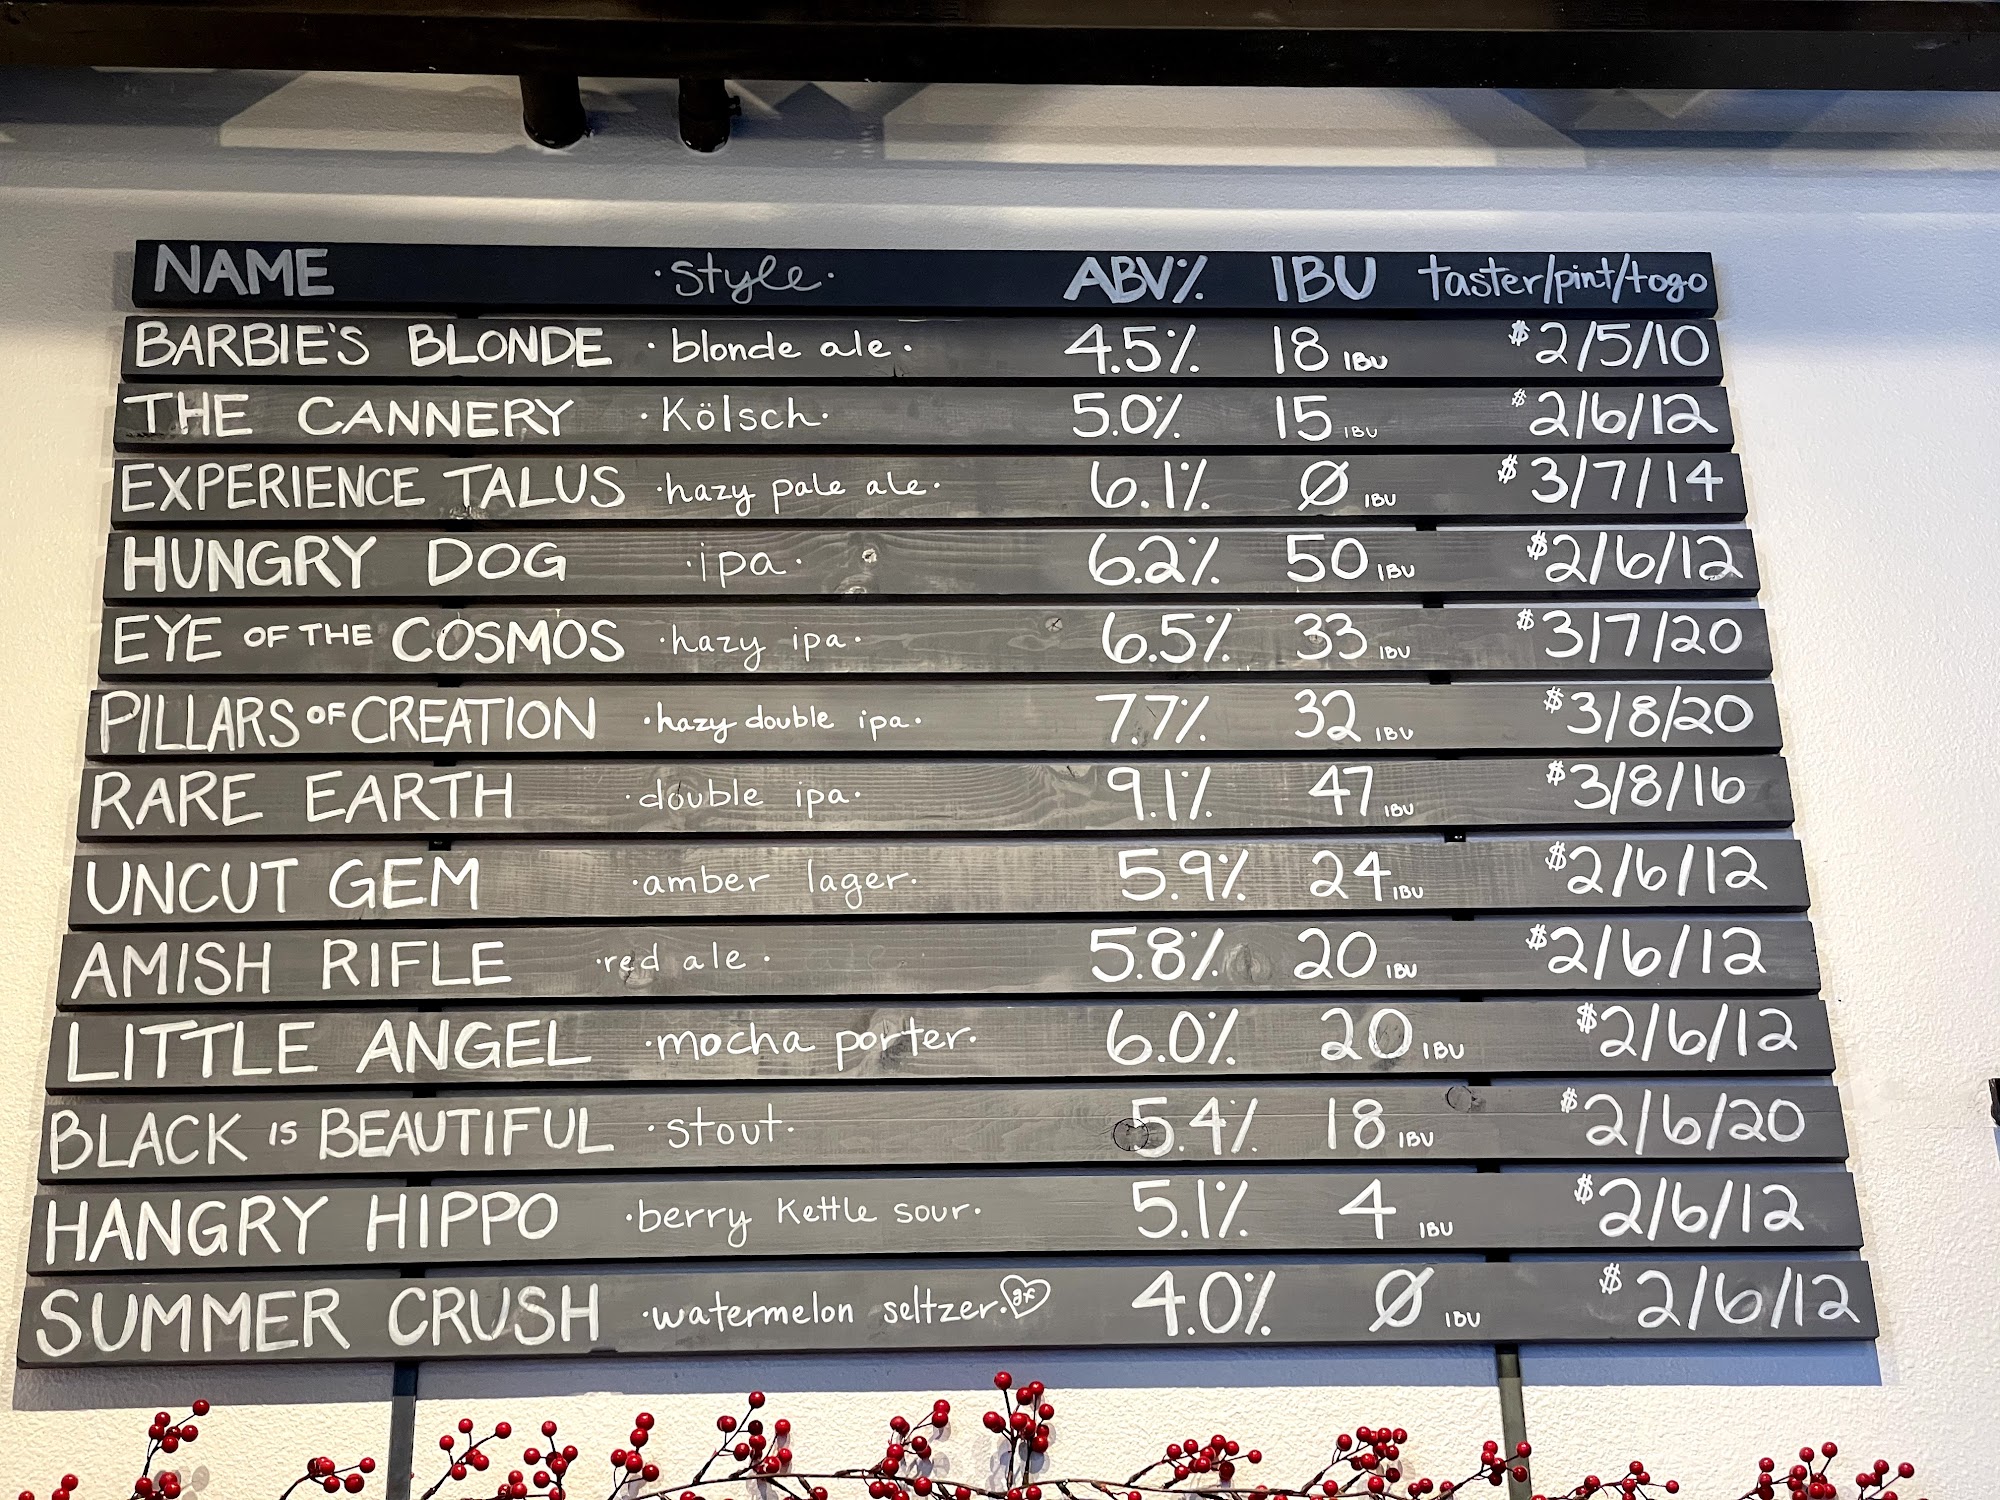 NAME ·style· ABV% IBU taster/pint/togo
BARBIE'S BLONDE ·blonde ale· 4.5% 18 IBU $2/5/10
THE CANNERY ·Kölsch· 5.0% 15 IBU $2/6/12
EXPERIENCE TALUS ·hazy pale ale· 6.1% Ø IBU $3/7/14
HUNGRY DOG ·ipa· 6.2% 50 IBU $2/6/12
EYE OF THE COSMOS ·hazy ipa· 6.5% 33 IBU $3/7/20
PILLARS OF CREATION ·hazy double ipa· 7.7% 32 IBU $3/8/20
RARE EARTH ·double ipa· 9.1% 47 IBU $3/8/16
UNCUT GEM ·amber lager· 5.9% 24 IBU $2/6/12
AMISH RIFLE ·red ale· 5.8% 20 IBU $2/6/12
LITTLE ANGEL ·mocha porter· 6.0% 20 IBU $2/6/12
BLACK IS BEAUTIFUL ·stout· 5.4% 18 IBU $2/6/20
HANGRY HIPPO ·berry kettle sour· 5.1% 4 IBU $2/6/12
SUMMER CRUSH ·watermelon seltzer· gf 4.0% Ø IBU $2/6/12